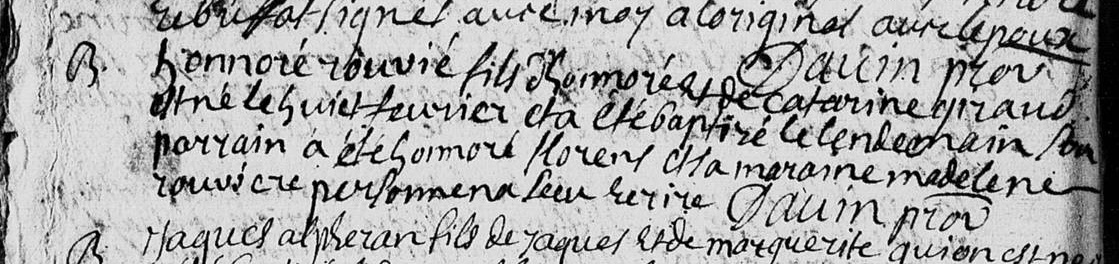 rebuffat signes avec moy a loriginal avec lepoux
Dauin prov
B. honnoré rouvié fils d'honnoré et de catarine giraud
est né le huict feurier et a été baptizé le lendemain son
parrain á été honnoré florens et la maraine madelene
rouviere personne na sceu ecrire Dauin prov
B. Jaques alpheran fils de jaques et de marguerite guion est né